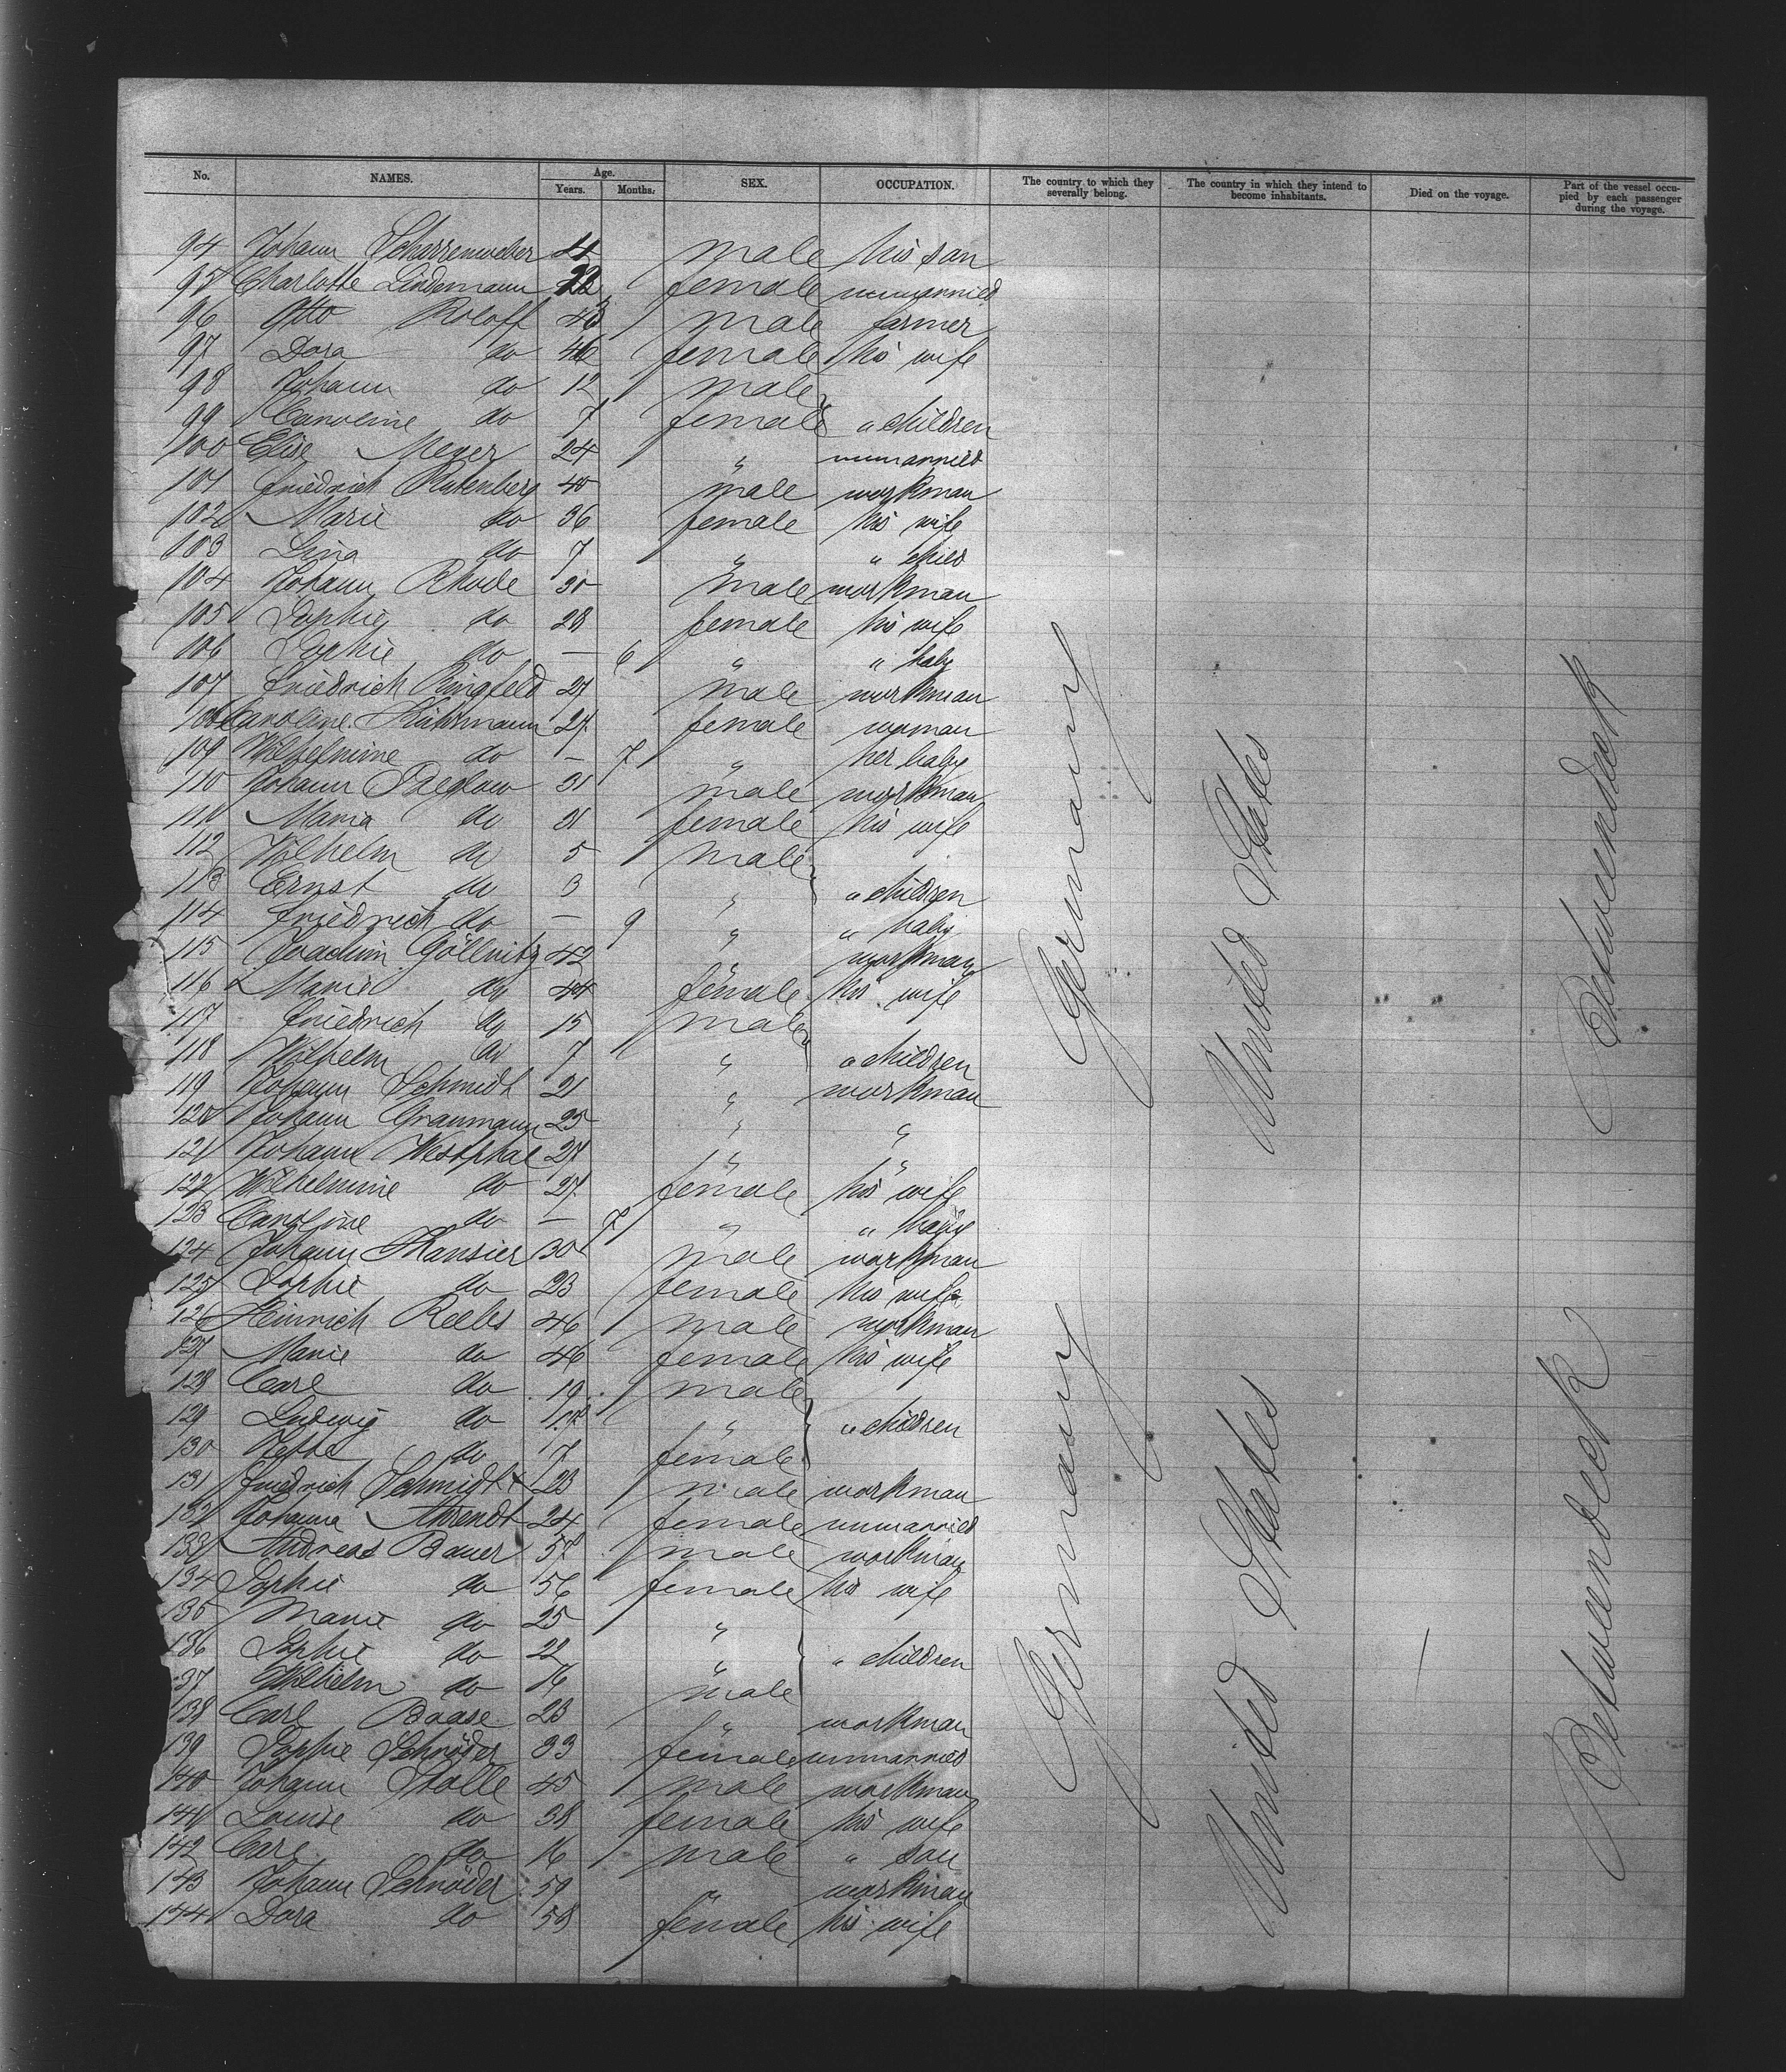 No. NAMES. Age. Years. Months. SEX. OCCUPATION. The country to which they severally belong. The country in which they intend to become inhabitants. Died on the voyage. Part of the vessel occupied by each passenger during the voyage.
94 Johann Scharrenweber 4 male his son
95 Charlotte Lindemann 22 female unmarried
96 Otto Roloff 43 male farmer
97 Dora do 46 female his wife
98 Johann do 12 male
99 Caroline do 7 female " children
100 Elise Meyer 24 " unmarried
101 Friedrich Rutenberg 40 male workman
102 Marie do 36 female his wife
103 Lina do 7 " " child
104 Johann Rhode 30 male workman
105 Sophie do 28 female his wife
106 Sophie do — 6 " " baby
107 Friedrich Ringfeld 27 male workman
108 Caroline 27 female woman
109 Wilhelmine do — 7 " her baby
110 Johann 31 male workman
111 Maria do 31 female his wife
112 Wilhelm do 5 male
113 Ernst do 3 " " children
114 Friedrich do — 9 " " baby
115 Joachim Göllnitz 42 " workman
116 Marie do 44 female his wife
117 Friedrich do 15 male
118 Wilhelm do 7 " " children
119 Johann Schmidt 21 " workman
120 Johann Graumann 25 " "
121 Johann Westphal 27 " "
122 Wilhelmine do 27 female his wife
123 Caroline do — 7 " " baby
124 Johann 30 male workman
125 Sophie do 23 female his wife
126 Heinrich Reebs 46 male workman
127 Marie do 46 female his wife
128 Carl do 19 male
129 Ludwig do 17 " " children
130 do 7 female
131 Friedrich Schmidt 23 male workman
132 Johanna Ahrendt 24 female unmarried
133 Andreas Bauer 57 male workman
134 Sophie do 56 female his wife
135 Marie do 25 "
136 Sophie do 22 " " children
137 Wilhelm do 16 male
138 Carl Baase 23 " workman
139 Sophie Schröder 33 female unmarried
140 Johann Stolle 45 male workman
141 Louise do 38 female his wife
142 Carl do 16 male " son
143 Johann Schröder 59 " workman
144 Dora do 58 female his wife
Germany
United States
Betweendeck
Germany
United States
Betweendeck